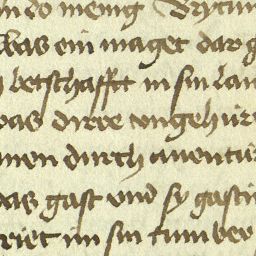 in do menig Brytun
was ein maget dar g
botschafft in sin lan
was dirre ungehür
men durch auentür
das gast und sy gastin
riet im sin tumber